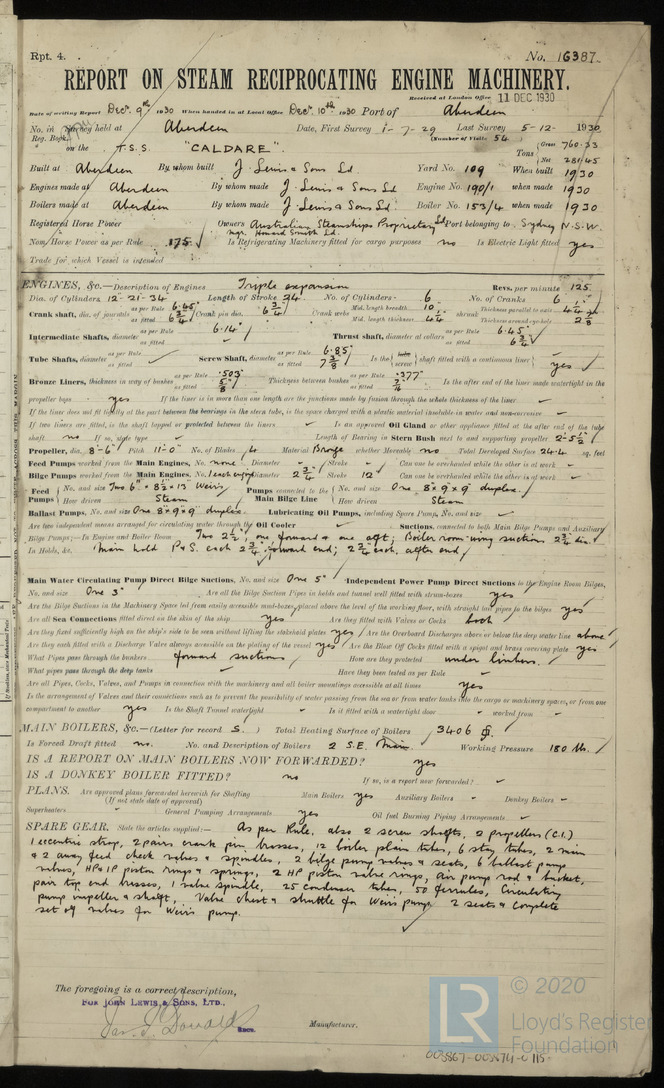 Rpt. 4.
No. 16387.
REPORT ON STEAM RECIPROCATING ENGINE MACHINERY.
Received at London Office 11 DEC 1930
Date of writing Report Dec. 9th 1930 When handed in at Local Office Dec. 10th 1930 Port of Aberdeen
No. in Survey held at Aberdeen Date, First Survey 1-7-29 Last Survey 5-12-1930
Reg. Book. (Number of Visits 54)
on the T.S.S. "CALDARE" Tons Gross 760.33 Net 281.45
Built at Aberdeen By whom built J. Lewis & Sons Ld Yard No. 109 When built 1930
Engines made at Aberdeen By whom made J. Lewis & Sons Ld Engine No. 190/1 when made 1930
Boilers made at Aberdeen By whom made J. Lewis & Sons Ld. Boiler No. 153/4 when made 1930
Registered Horse Power Owners Australian Steamships Proprietary Ld Port belonging to Sydney N.S.W.
Mgr. Howard Smith Ld.
Nom. Horse Power as per Rule 175 Is Refrigerating Machinery fitted for cargo purposes no Is Electric Light fitted yes
Trade for which Vessel is intended
ENGINES, &c.—Description of Engines Triple expansion Revs. per minute 125
Dia. of Cylinders 12-21-34 Length of Stroke 24 No. of Cylinders 6 No. of Cranks 6
Crank shaft, dia. of journals as per Rule 6.45 as fitted 6 3/4 Crank pin dia. 6 3/4 Crank webs Mid. length breadth 10 Mid. length thickness 4 1/4 shrunk Thickness parallel to axis 4 1/4 Thickness around eyehole 2 7/8
Intermediate Shafts, diameter as per Rule 6.14 as fitted Thrust shaft, diameter at collars as per Rule 6.45 as fitted 6 3/4
Tube Shafts, diameter as per Rule as fitted Screw Shaft, diameter as per Rule 6.85 as fitted 7 3/8 Is the screw shaft fitted with a continuous liner yes
Bronze Liners, thickness in way of bushes as per Rule .503 as fitted 5/8 Thickness between bushes as per Rule .377 as fitted Is the after end of the liner made watertight in the
propeller boss yes If the liner is in more than one length are the junctions made by fusion through the whole thickness of the liner
If the liner does not fit tightly at the part between the bearings in the stern tube, is the space charged with a plastic material insoluble in water and non-corrosive
If two liners are fitted, is the shaft lapped or protected between the liners Is an approved Oil Gland or other appliance fitted at the after end of the tube
shaft no If so, state type Length of Bearing in Stern Bush next to and supporting propeller 2-5 1/2
Propeller, dia. 8'-6" Pitch 11'-0" No. of Blades 4 Material Bronze whether Moveable no Total Developed Surface 24.4 sq. feet
Feed Pumps worked from the Main Engines, No. none Diameter Stroke Can one be overhauled while the other is at work
Bilge Pumps worked from the Main Engines, No. 1 each engine Diameter 2 3/4" Stroke 12" Can one be overhauled while the other is at work
Feed Pumps No. and size Two 6" x 8 1/2 x 13" Weirs Pumps connected to the Main Bilge Line No. and size One 8" x 9" x 9" duplex.
How driven Steam How driven Steam
Ballast Pumps, No. and size One 8" x 9" x 9" duplex Lubricating Oil Pumps, including Spare Pump, No. and size
Are two independent means arranged for circulating water through the Oil Cooler Suctions, connected to both Main Bilge Pumps and Auxiliary
Bilge Pumps;—In Engine and Boiler Room Two 2 1/2, one forward & one aft; Boiler room wing suctions 2 3/4 dia.
In Holds, &c. Main hold P & S. each 2 3/4 forward end; 2 3/4 each, after end
Main Water Circulating Pump Direct Bilge Suctions, No. and size One 5" Independent Power Pump Direct Suctions to the Engine Room Bilges,
No. and size One 3" Are all the Bilge Suction Pipes in holds and tunnel well fitted with strum-boxes yes
Are the Bilge Suctions in the Machinery Space led from easily accessible mud-boxes, placed above the level of the working floor, with straight tail pipes to the bilges yes
Are all Sea Connections fitted direct on the skin of the ship yes Are they fitted with Valves or Cocks both
Are they fixed sufficiently high on the ship's side to be seen without lifting the stokehold plates yes Are the Overboard Discharges above or below the deep water line above
Are they each fitted with a Discharge Valve always accessible on the plating of the vessel yes Are the Blow Off Cocks fitted with a spigot and brass covering plate yes
What Pipes pass through the bunkers forward suctions How are they protected under limbers.
What pipes pass through the deep tanks Have they been tested as per Rule
Are all Pipes, Cocks, Valves, and Pumps in connection with the machinery and all boiler mountings accessible at all times yes
Is the arrangement of Valves and their connections such as to prevent the possibility of water passing from the sea or from water tanks into the cargo or machinery spaces, or from one
compartment to another yes Is the Shaft Tunnel watertight Is it fitted with a watertight door worked from
MAIN BOILERS, &c.—(Letter for record S.) Total Heating Surface of Boilers 3406
Is Forced Draft fitted no. No. and Description of Boilers 2 S.E. Main. Working Pressure 180 lbs.
IS A REPORT ON MAIN BOILERS NOW FORWARDED? yes
IS A DONKEY BOILER FITTED? no If so, is a report now forwarded?
PLANS. Are approved plans forwarded herewith for Shafting Main Boilers yes Auxiliary Boilers Donkey Boilers
(If not state date of approval)
Superheaters General Pumping Arrangements yes Oil fuel Burning Piping Arrangements
SPARE GEAR. State the articles supplied:— As per Rule. also 2 screw shafts, 2 propellers (C.I.)
1 eccentric strap, 2 pairs crank pin brasses, 12 boiler plain tubes, 6 stay tubes, 2 main
& 2 away feed check valves & spindles, 2 bilge pump valves & seats, 6 ballast pump
valves, HP & IP piston rings & springs, 2 HP piston valve rings, air pump rod & bucket,
pair top end brasses, 1 valve spindle, 25 condenser tubes, 50 ferrules, Circulating
pump impeller & shaft, Valve chest & shuttle for Weirs pump, 2 seats & complete
set of valves for Weirs pump.
The foregoing is a correct description,
FOR JOHN LEWIS & SONS, LTD.,
Manufacturer.
LR
© 2020
Lloyd's Register
Foundation
003867-003874-0115